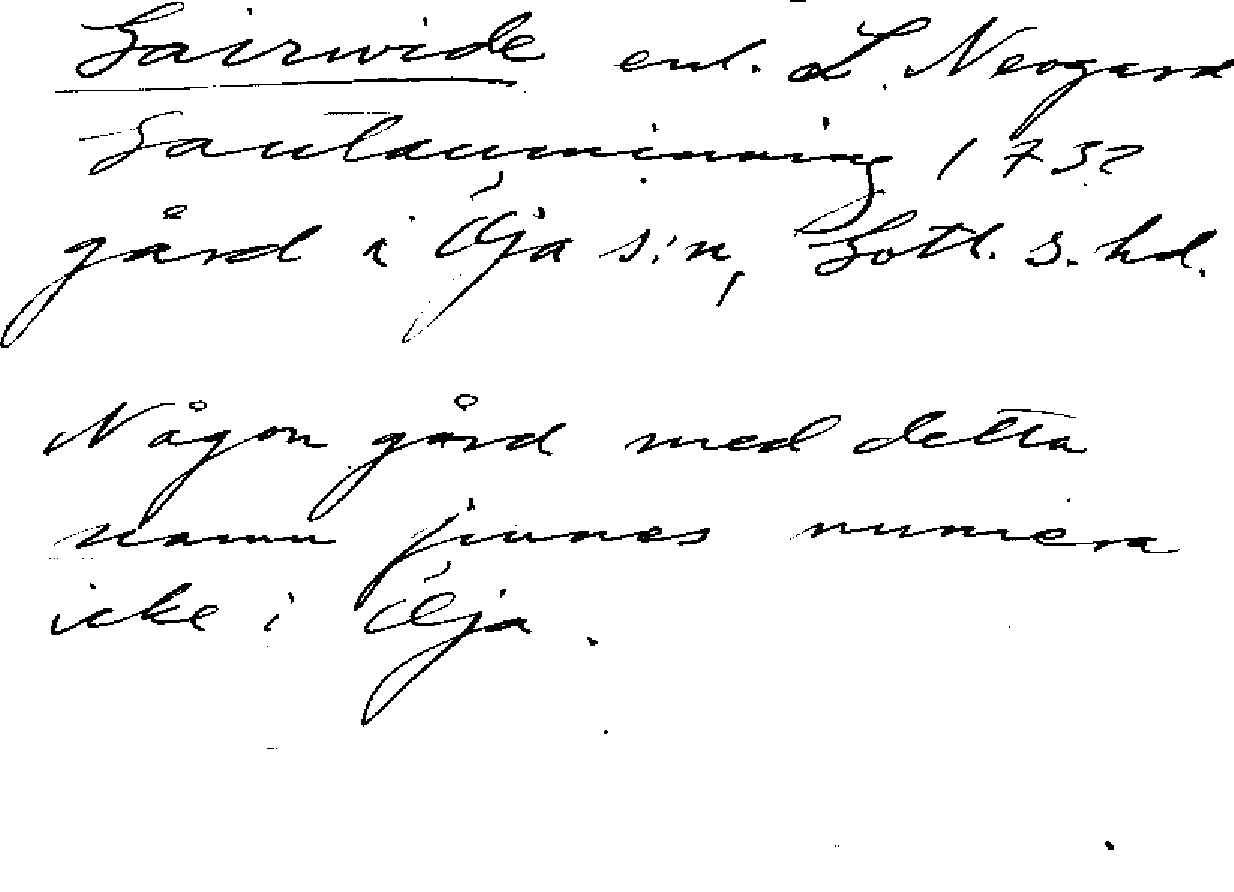 Gairwide enl. L. Neogard
Gautauminning 1732
gård i Öja s:n, Gotl. S. hd.
Någon gård med detta
namn finnes numera
icke i Öja.